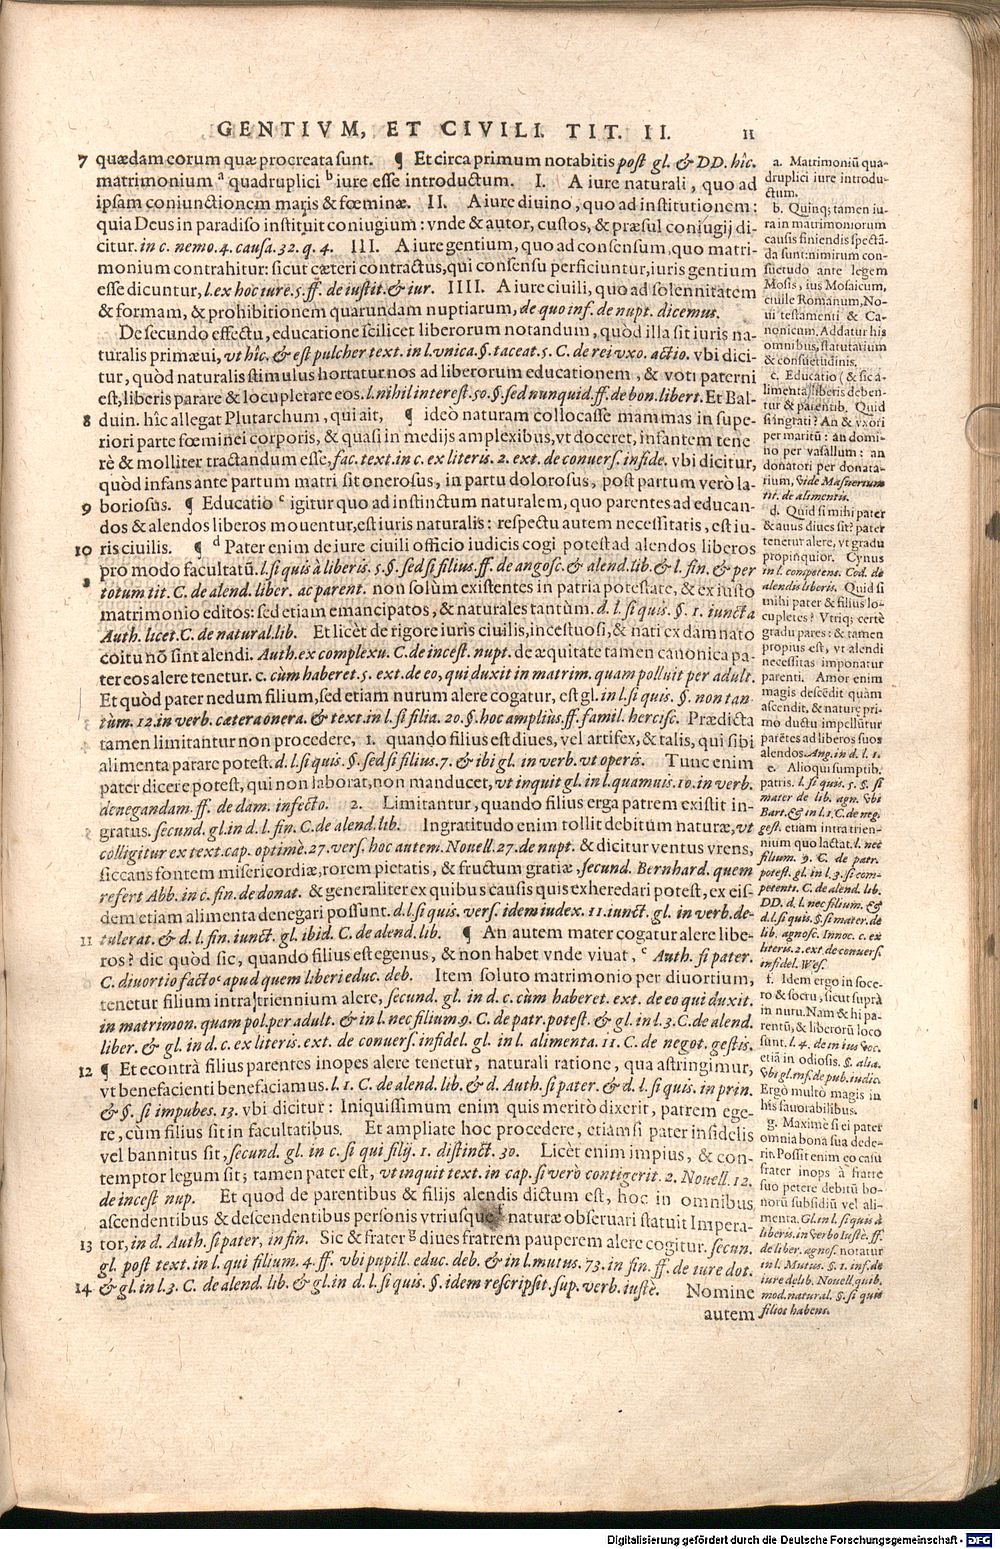 GENTIVM, ET CIVILI. TIT. II. 11
7 quædam eorum quæ procreata sunt. ¶ Et circa primum notabitis post gl. & DD. hîc.
matrimonium a quadruplici b iure esse introductum. I. A iure naturali, quo ad
ipsam coniunctionem maris & fœminæ. II. A iure diuino, quo ad institutionem:
quia Deus in paradiso instituit coniugium: vnde & autor, custos, & præsul coniugij di-
citur. in c. nemo. 4. causa. 32. q. 4. III. A iure gentium, quo ad consensum, quo matri-
monium contrahitur: sicut cæteri contractus, qui consensu perficiuntur, iuris gentium
esse dicuntur, l. ex hoc iure. 5. ff. de iustit. & iur. IIII. A iure ciuili, quo ad solennitatem
& formam, & prohibitionem quarundam nuptiarum, de quo inf. de nupt. dicemus.
De secundo effectu, educatione scilicet liberorum notandum, quòd illa sit iuris na-
turalis primæui, vt hîc. & est pulcher text. in l. vnica. §. taceat. 5. C. de rei vxo. actio. vbi dici-
tur, quòd naturalis stimulus hortatur nos ad liberorum educationem, & voti paterni
est, liberis parare & locupletare eos. l. nihil interest. 50. §. sed nunquid. ff. de bon. libert. Et Bal-
8 duin. hîc allegat Plutarchum, qui ait, ¶ ideò naturam collocasse mammas in supe-
riori parte fœminei corporis, & quasi in medijs amplexibus, vt doceret, infantem tene
rè & molliter tractandum esse, fac. text. in c. ex literis. 2. ext. de conuers. infide. vbi dicitur,
quòd infans ante partum matri sit onerosus, in partu dolorosus, post partum verò la-
9 boriosus. ¶ Educatio c igitur quo ad instinctum naturalem, quo parentes ad educan-
dos & alendos liberos mouentur, est iuris naturalis: respectu autem necessitatis, est iu-
10 ris ciuilis. ¶ d Pater enim de iure ciuili officio iudicis cogi potest ad alendos liberos
pro modo facultatũ. l. si quis à liberis. 5. §. sed si filius. ff. de angosc. & alend. lib. & l. fin. & per
totum tit. C. de alend. liber. ac parent. non solùm existentes in patria potestate, & ex iusto
matrimonio editos: sed etiam emancipatos, & naturales tantùm. d. l. si quis. §. 1. iuncta
Auth. licet. C. de natural. lib. Et licèt de rigore iuris ciuilis, incestuosi, & nati ex damnato
coitu nõ sint alendi. Auth. ex complexu. C. de incest. nupt. de æquitate tamen canonica pa-
ter eos alere tenetur. c. cùm haberet. 5. ext. de eo, qui duxit in matrim. quam polluit per adult.
Et quòd pater nedum filium, sed etiam nurum alere cogatur, est gl. in l. si quis. §. non tan-
tùm. 12. in verb. cætera onera. & text. in l. si filia. 20. §. hoc ampliùs. ff. famil. hercisc. Prædicta
tamen limitantur non procedere, 1. quando filius est diues, vel artifex, & talis, qui sibi
alimenta parare potest. d. l. si quis. §. sed si filius. 7. & ibi gl. in verb. vt operis. Tunc enim
pater dicere potest, qui non laborat, non manducet, vt inquit gl. in l. quamuis. 10. in verb.
denegandam. ff. de dam. infecto. 2. Limitantur, quando filius erga patrem existit in-
gratus. secund. gl. in d. l. fin. C. de alend. lib. Ingratitudo enim tollit debitum naturæ, vt
colligitur ex text. cap. optimè. 27. vers. hoc autem. Nouell. 27. de nupt. & dicitur ventus vrens,
siccans fontem misericordiæ, rorem pietatis, & fructum gratiæ, secund. Bernhard. quem
refert Abb. in c. fin. de donat. & generaliter ex quibus causis quis exheredari potest, ex eis-
dem etiam alimenta denegari possunt. d. l. si quis. vers. idem iudex. 11. iunct. gl. in verb. de-
11 tulerat. & d. l. fin. iunct. gl. ibid. C. de alend. lib. ¶ An autem mater cogatur alere libe-
ros? dic quòd sic, quando filius est egenus, & non habet vnde viuat, e Auth. si pater.
C. diuortio facto apud quem liberi educ. deb. Item soluto matrimonio per diuortium,
tenetur filium intra triennium alere, secund. gl. in d. c. cùm haberet. ext. de eo qui duxit.
in matrimon. quam pol. per adult. & in l. nec filium. 9. C. de patr. potest. & gl. in l. 3. C. de alend.
liber. & gl. in d. c. ex literis. ext. de conuers. infidel. gl. in l. alimenta. 11. C. de negot. gestis.
12 ¶ Et econtrà filius parentes inopes alere tenetur, naturali ratione, qua astringimur,
vt benefacienti benefaciamus. l. 1. C. de alend. lib. & d. Auth. si pater. & d. l. si quis. in prin.
& §. si impubes. 13. vbi dicitur: Iniquissimum enim quis meritò dixerit, patrem ege-
re, cùm filius sit in facultatibus. Et ampliate hoc procedere, etiamsi pater infidelis
vel bannitus sit, secund. gl. in c. si qui filij. 1. distinct. 30. Licèt enim impius, & con-
temptor legum sit; tamen pater est, vt inquit text. in cap. si verò contigerit. 2. Nouell. 12.
de incest nup. Et quod de parentibus & filijs alendis dictum est, hoc in omnibus
ascendentibus & descendentibus personis vtriusque f naturæ obseruari statuit Impera-
13 tor, in d. Auth. si pater, in fin. Sic & frater g diues fratrem pauperem alere cogitur. secun.
gl. post text. in l. qui filium. 4. ff. vbi pupill. educ. deb. & in l. mutus. 73. in fin. ff. de iure dot.
14 & gl. in l. 3. C. de alend. lib. & gl. in d. l. si quis. §. idem rescripsit. sup. verb. iustè. Nomine
autem
a. Matrimoniũ qua-
druplici iure introdu-
ctum.
b. Quinq; tamen iu-
ra in matrimoniorum
causis finiendis spectã-
da sunt: nimirum con-
suetudo ante legem
Mosis, ius Mosaicum,
ciuile Romanum, No-
ui testamenti & Ca-
nonicum. Addatur his
omnibus, statutarium
& consuetudinis.
c. Educatio (& sic a-
limenta) liberis deben-
tur & parentib. Quid
si ingrati? An & vxori
per maritũ: an domi-
no per vasallum: an
donatori per donata-
rium, vide Masuerium
tit. de alimentis.
d. Quid si mihi pater
& auus diues sit? pater
tenetur alere, vt gradu
propinquior. Cynus
in l. competens. Cod. de
alendis liberis. Quid si
mihi pater & filius lo-
cupletes? Vtriq; certè
gradu pares: & tamen
propius est, vt alendi
necessitas imponatur
parenti. Amor enim
magis descẽdit quàm
ascendit, & naturæ pri-
mo ductu impellũtur
parẽtes ad liberos suos
alendos. Ang. in d. l. 1.
e. Alioqui sumptib.
patris. l. si quis. 5. §. si
mater de lib. agn. vbi
Bart. & in l. 1. C. de neg.
gest. etiam intra trien-
nium quo lactat. l. nec
filium. 9. C. de patr.
potest. gl. in l. 3. si com-
petenti. C. de alend. lib.
DD. d. l. nec filium. &
d. l. si quis. §. si mater. de
lib. agnosc. Innoc. c. ex
literis. 2. ext. de conuers.
infidel. Wes.
f. Idem ergo in soce-
ro & socru, sicut suprà
in nuru. Nam & hi pa-
rentũ, & liberorũ loco
sunt. l. 4. de in ius voc.
etiã in odiosis. §. alia.
vbi gl. inf. de pub. iudic.
Ergò multò magis in
his fauorabilibus.
g. Maximè si ei pater
omnia bona sua dede-
rit. Possit enim eo casu
frater inops à fratre
suo petere debitũ bo-
norũ subsidiũ vel ali-
menta. Gl. in l. si quis à
liberis. in verbo Iustè. ff.
de liber. agnos. notatur
in l. Mutus. §. 1. inf. de
iure de lib. Nouell. quib.
mod. natural. §. si quis
filios habens.
Digitalisierung gefördert durch die Deutsche Forschungsgemeinschaft - DFG